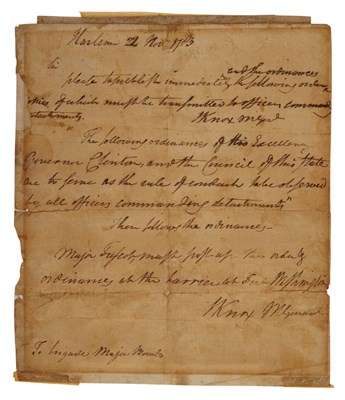 Harlem 2 Nov 1783
and the ordinances
Sir
please to publish immediately the following orders
of which must be transmitted to officers commandg
detachments. HKnox MGenl
"The following ordinances of his Excellency
Governor Clinton, and the Council of this State
are to serve as the rule of conduct to be observed
by all officers commanding detachments"
Then follows the ordinances—
Major must post up the orders
ordinances at the barrier at Fort Washington
HKnox MGeneral
To brigade Major